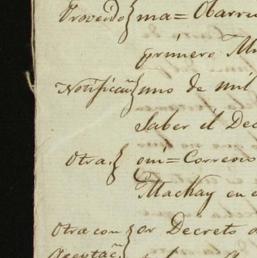 Proveido} ma= Obarri
primero M
Notificacn} uno de mil
saber el Dec
Otra.} omi= Correos
Mackay en e
Otra con} or Decreto d
Aceptacn